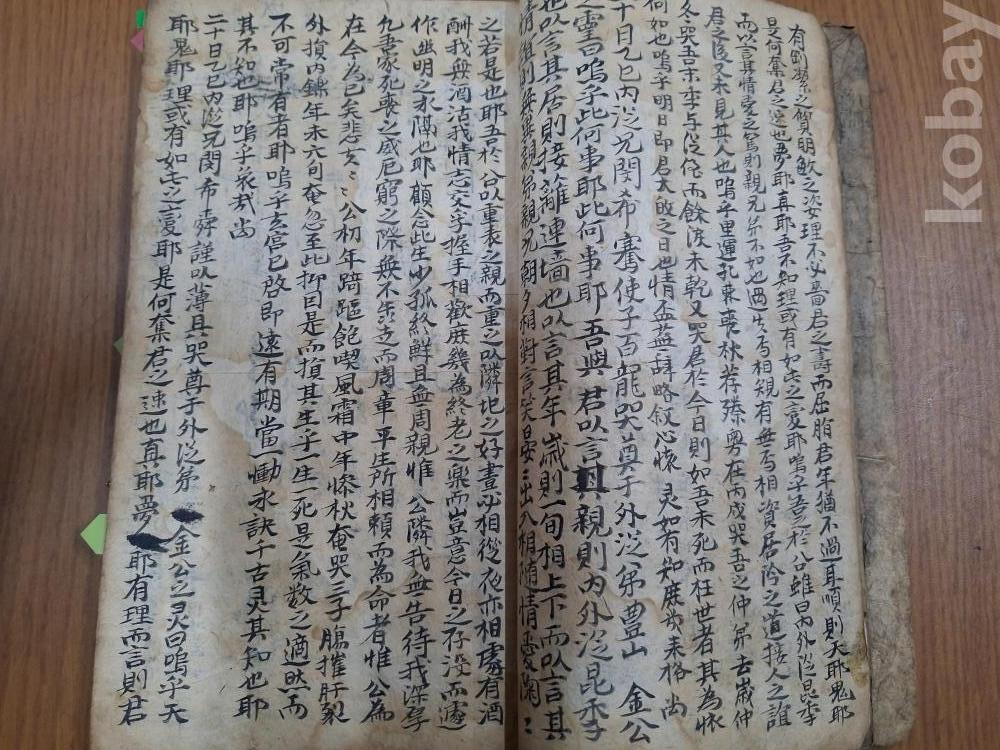 有剛潔之質明敏之姿理不必嗇君之壽而屈脂君年猶不過耳順則天耶鬼耶
是何奪君之速也夢耶真耶吾不知理或有如是之憂耶嗚乎吾之於公雖曰內外從昆季
而以言其情愛之篤則親兄弟不如也過失而相規有無而相資居於之道接人之誼
君之後又未見其人也嗚乎里運孔棘喪秋荐瘵粤在丙戌哭吾之仲弟去歲仲
冬哭吾末季与從侄而餘淚未乾又哭君於今日則如吾未死而在世者其為悵
何如也嗚乎明日即君大啟之日也情益辭略敘心懷 灵如有知庶欤来格尚
二十日乙巳內從兄閔希騫使子百龍哭奠于外從弟豊山 金公
之靈曰嗚乎此何事耶此何事耶 吾與 君以言其親則內外從昆季
也以言其居則接籬連墻也以言其年歲則一旬相上下而以言其
情誼則無異親弟親兄朝夕相對言笑晏〻出入相隨情愛藹〻
之若是也耶吾於公以重表之親而重之以隣圯之好晝必相從夜亦相處有酒
酬我無酒沽我情志交孚握手相歡庶幾為終老之樂而豈意今日之存沒而遽
作幽明之永隔也耶顧念此生少孤終鮮且無周親惟 公隣我無告待我深厚
凡吾家死喪之威厄窮之際無不来走而周章平生所相賴而為命者惟 公為
在今焉已矣悲夫〻〻公初年踦軀飽喫風霜中年慘秋奄哭三子膓摧肝裂
外損內鑠年未六旬奄忽至此抑因是而損其生乎一生一死是氣數之適然而
不可常有者耶嗚乎玄宮已啓即 遠有期當一慟永訣千古灵其知也耶
其不知也耶嗚乎哀哉尚
二十日乙巳內從兄閔希舜謹以薄具哭尊于外從弟 金公之灵曰嗚乎天
耶鬼耶理或有如是之憂耶是何奪君之速也真耶夢耶有理而言則君
kobay